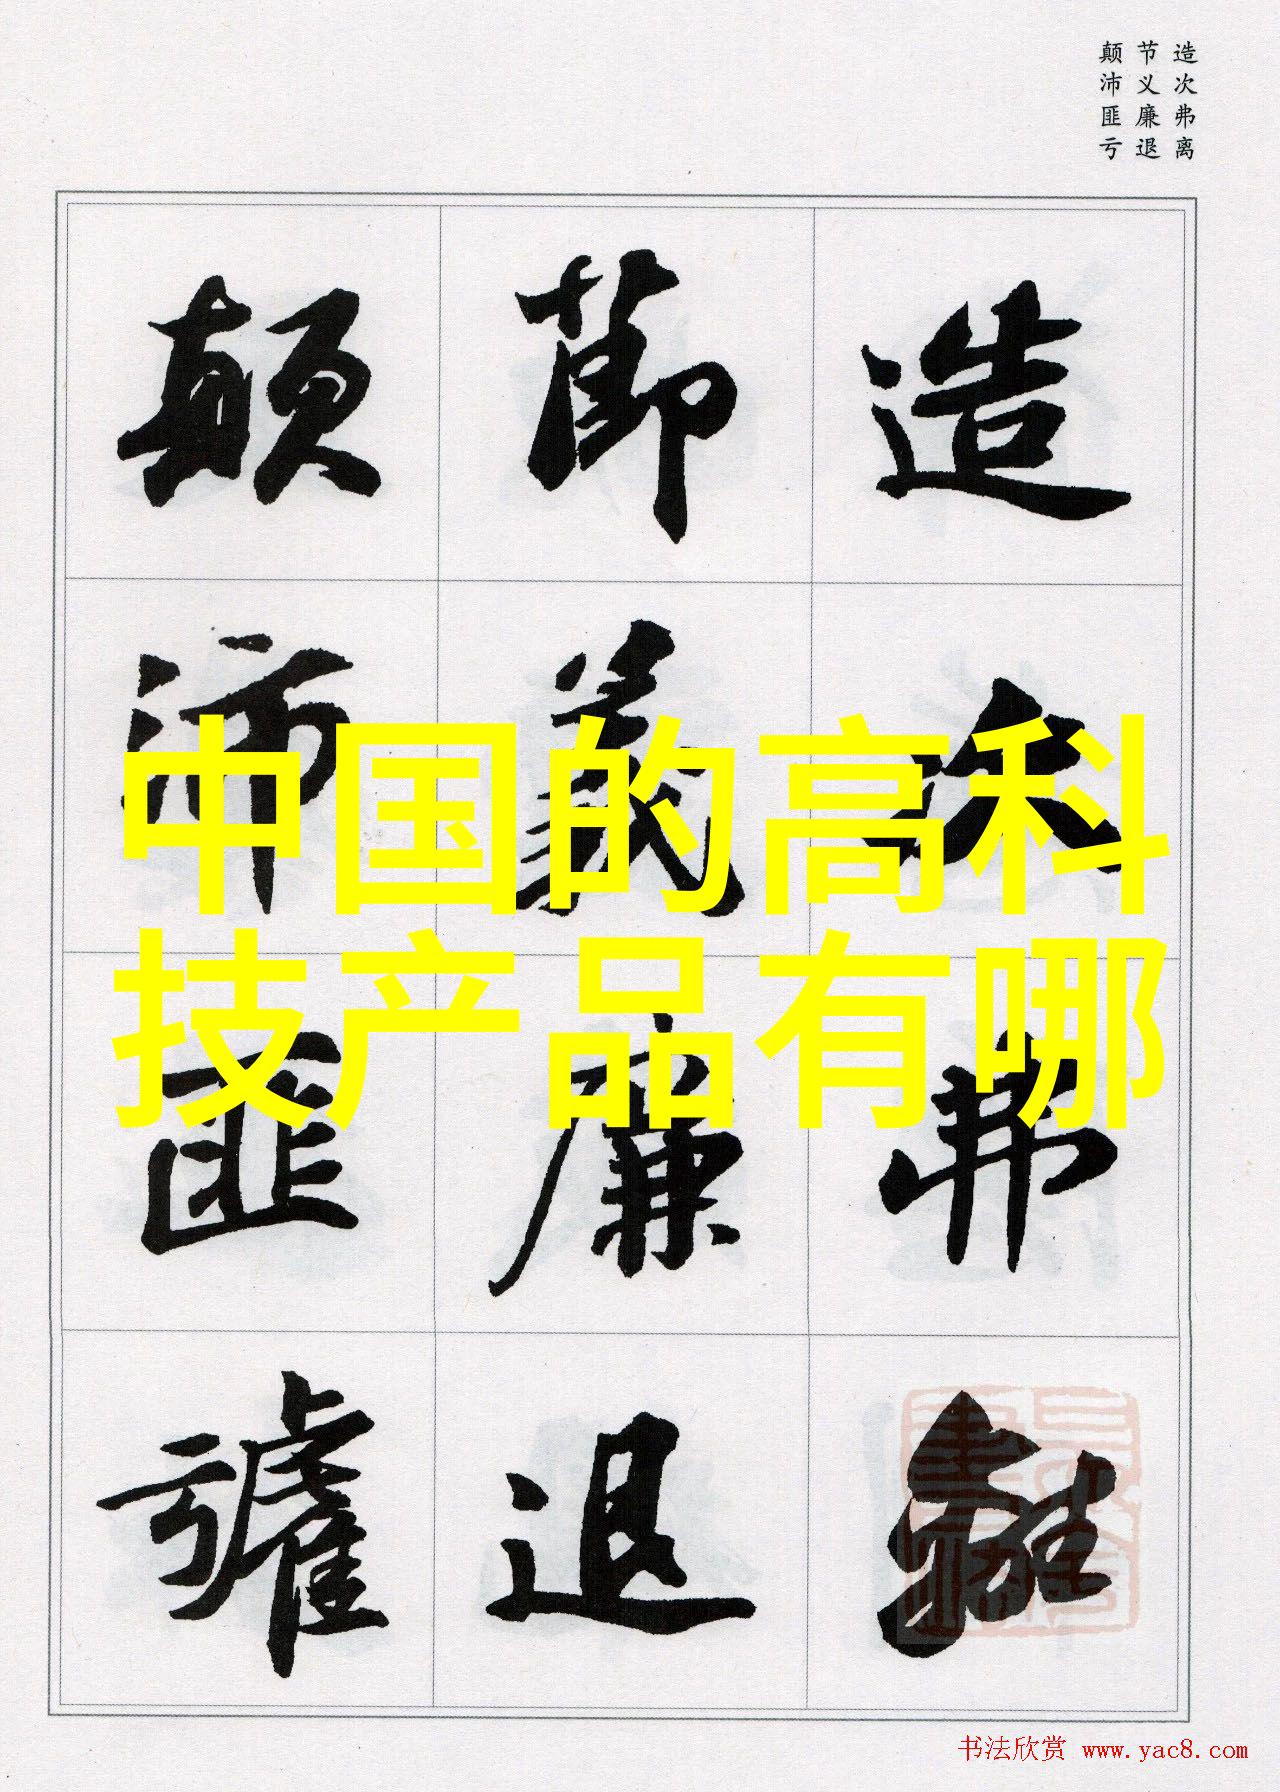 造次弗离
节义廉退
颠沛匪亏
造次弗離
節義廉退
顛沛匪虧
中国的高科
技产品有哪
书法欣赏 www.yac8.com